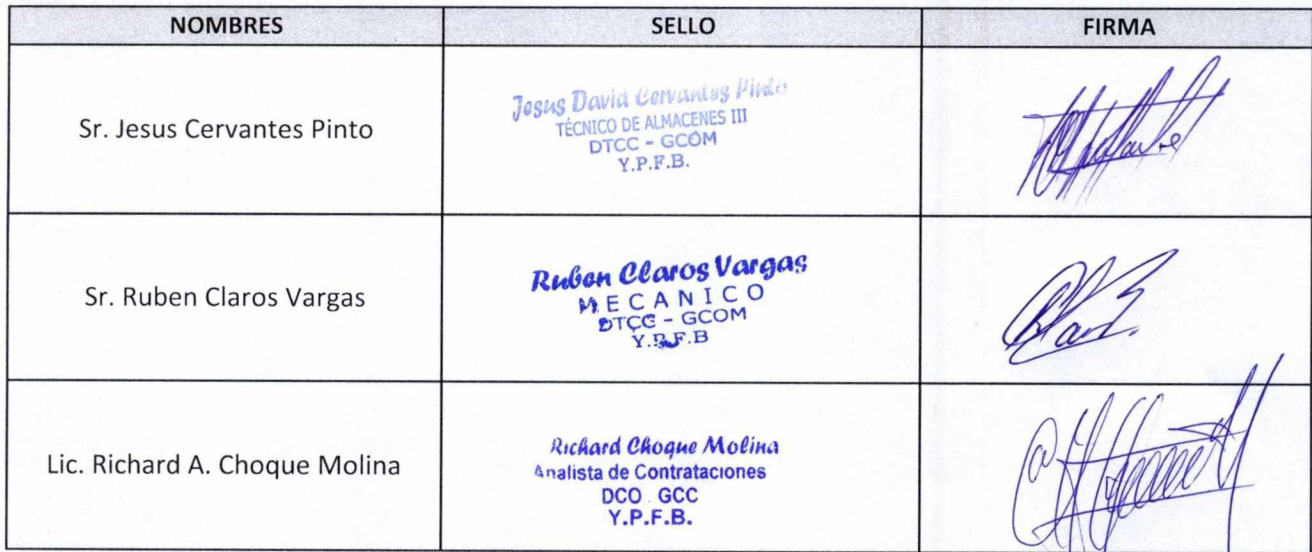 NOMBRES SELLO FIRMA
Sr. Jesus Cervantes Pinto
Jesus David Cervantes Pinto
TÉCNICO DE ALMACENES III
DTCC - GCOM
Y.P.F.B.
Sr. Ruben Claros Vargas
Ruben Claros Vargas
MECANICO
DTCC - GCOM
Y.P.F.B
Lic. Richard A. Choque Molina
Richard Choque Molina
Analista de Contrataciones
DCO GCC
Y.P.F.B.